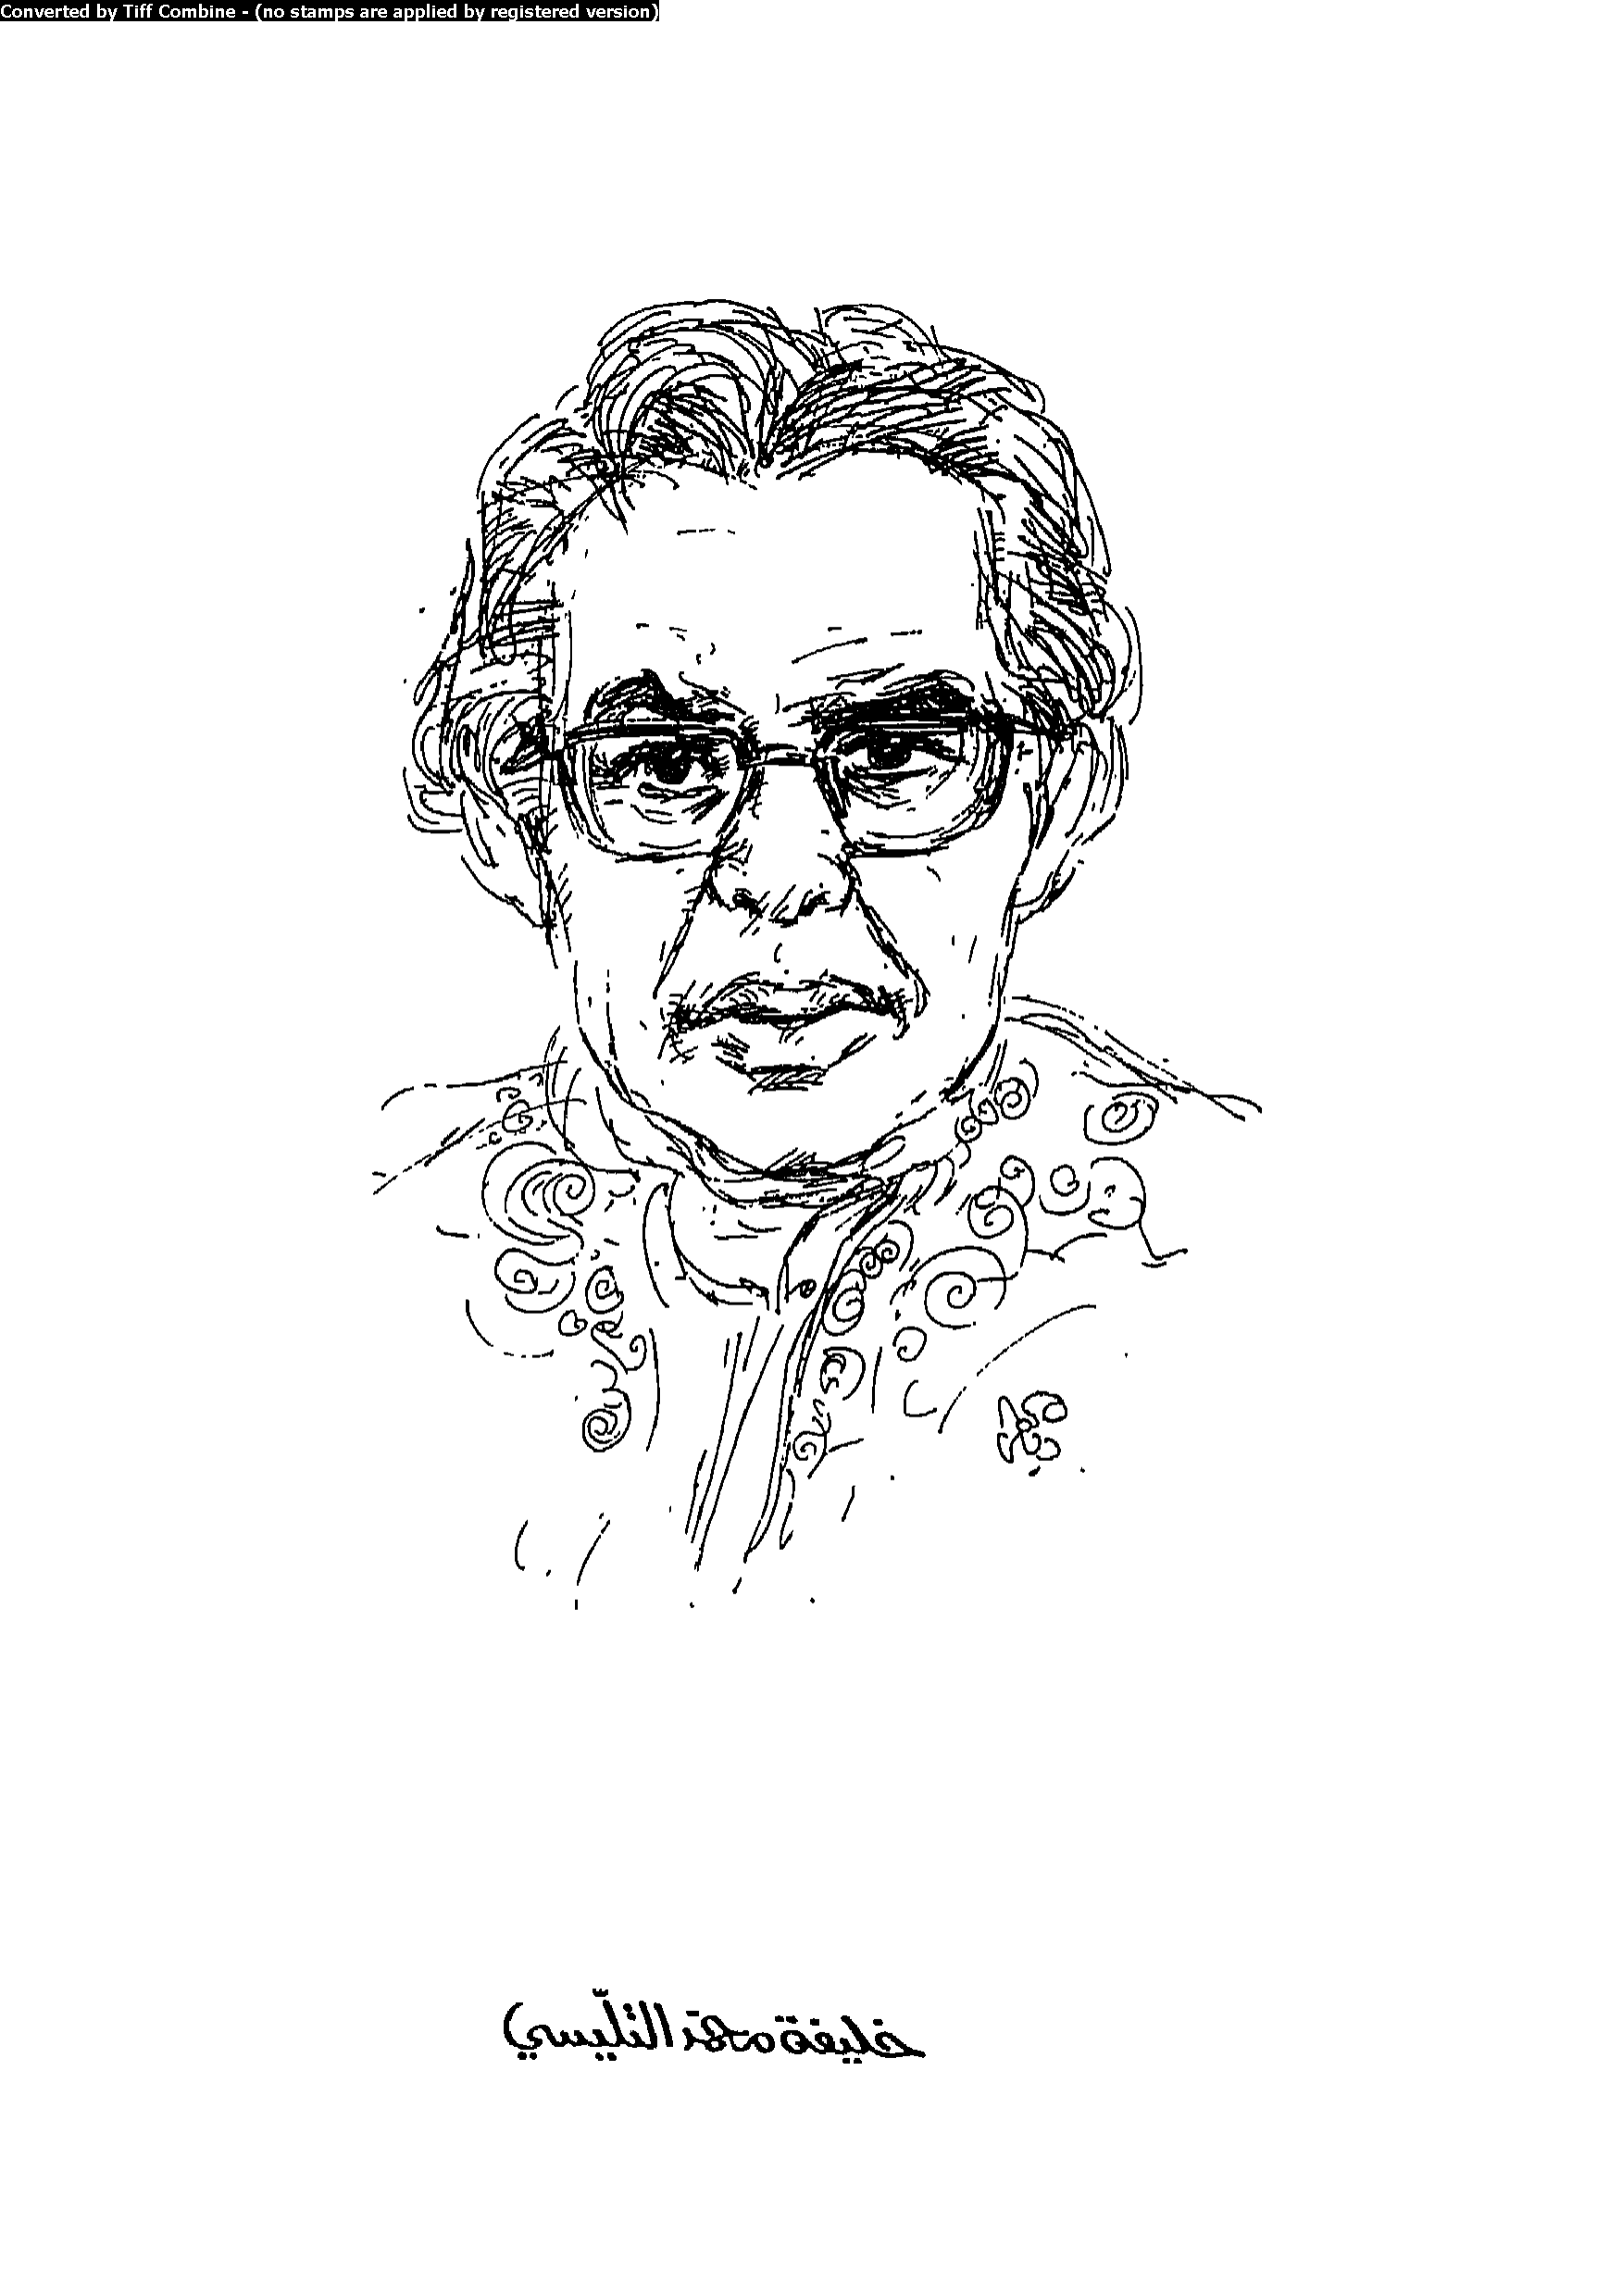 Converted by Tiff Combine - (no stamps are applied by registered version)
خليفة محمد التلّيسي